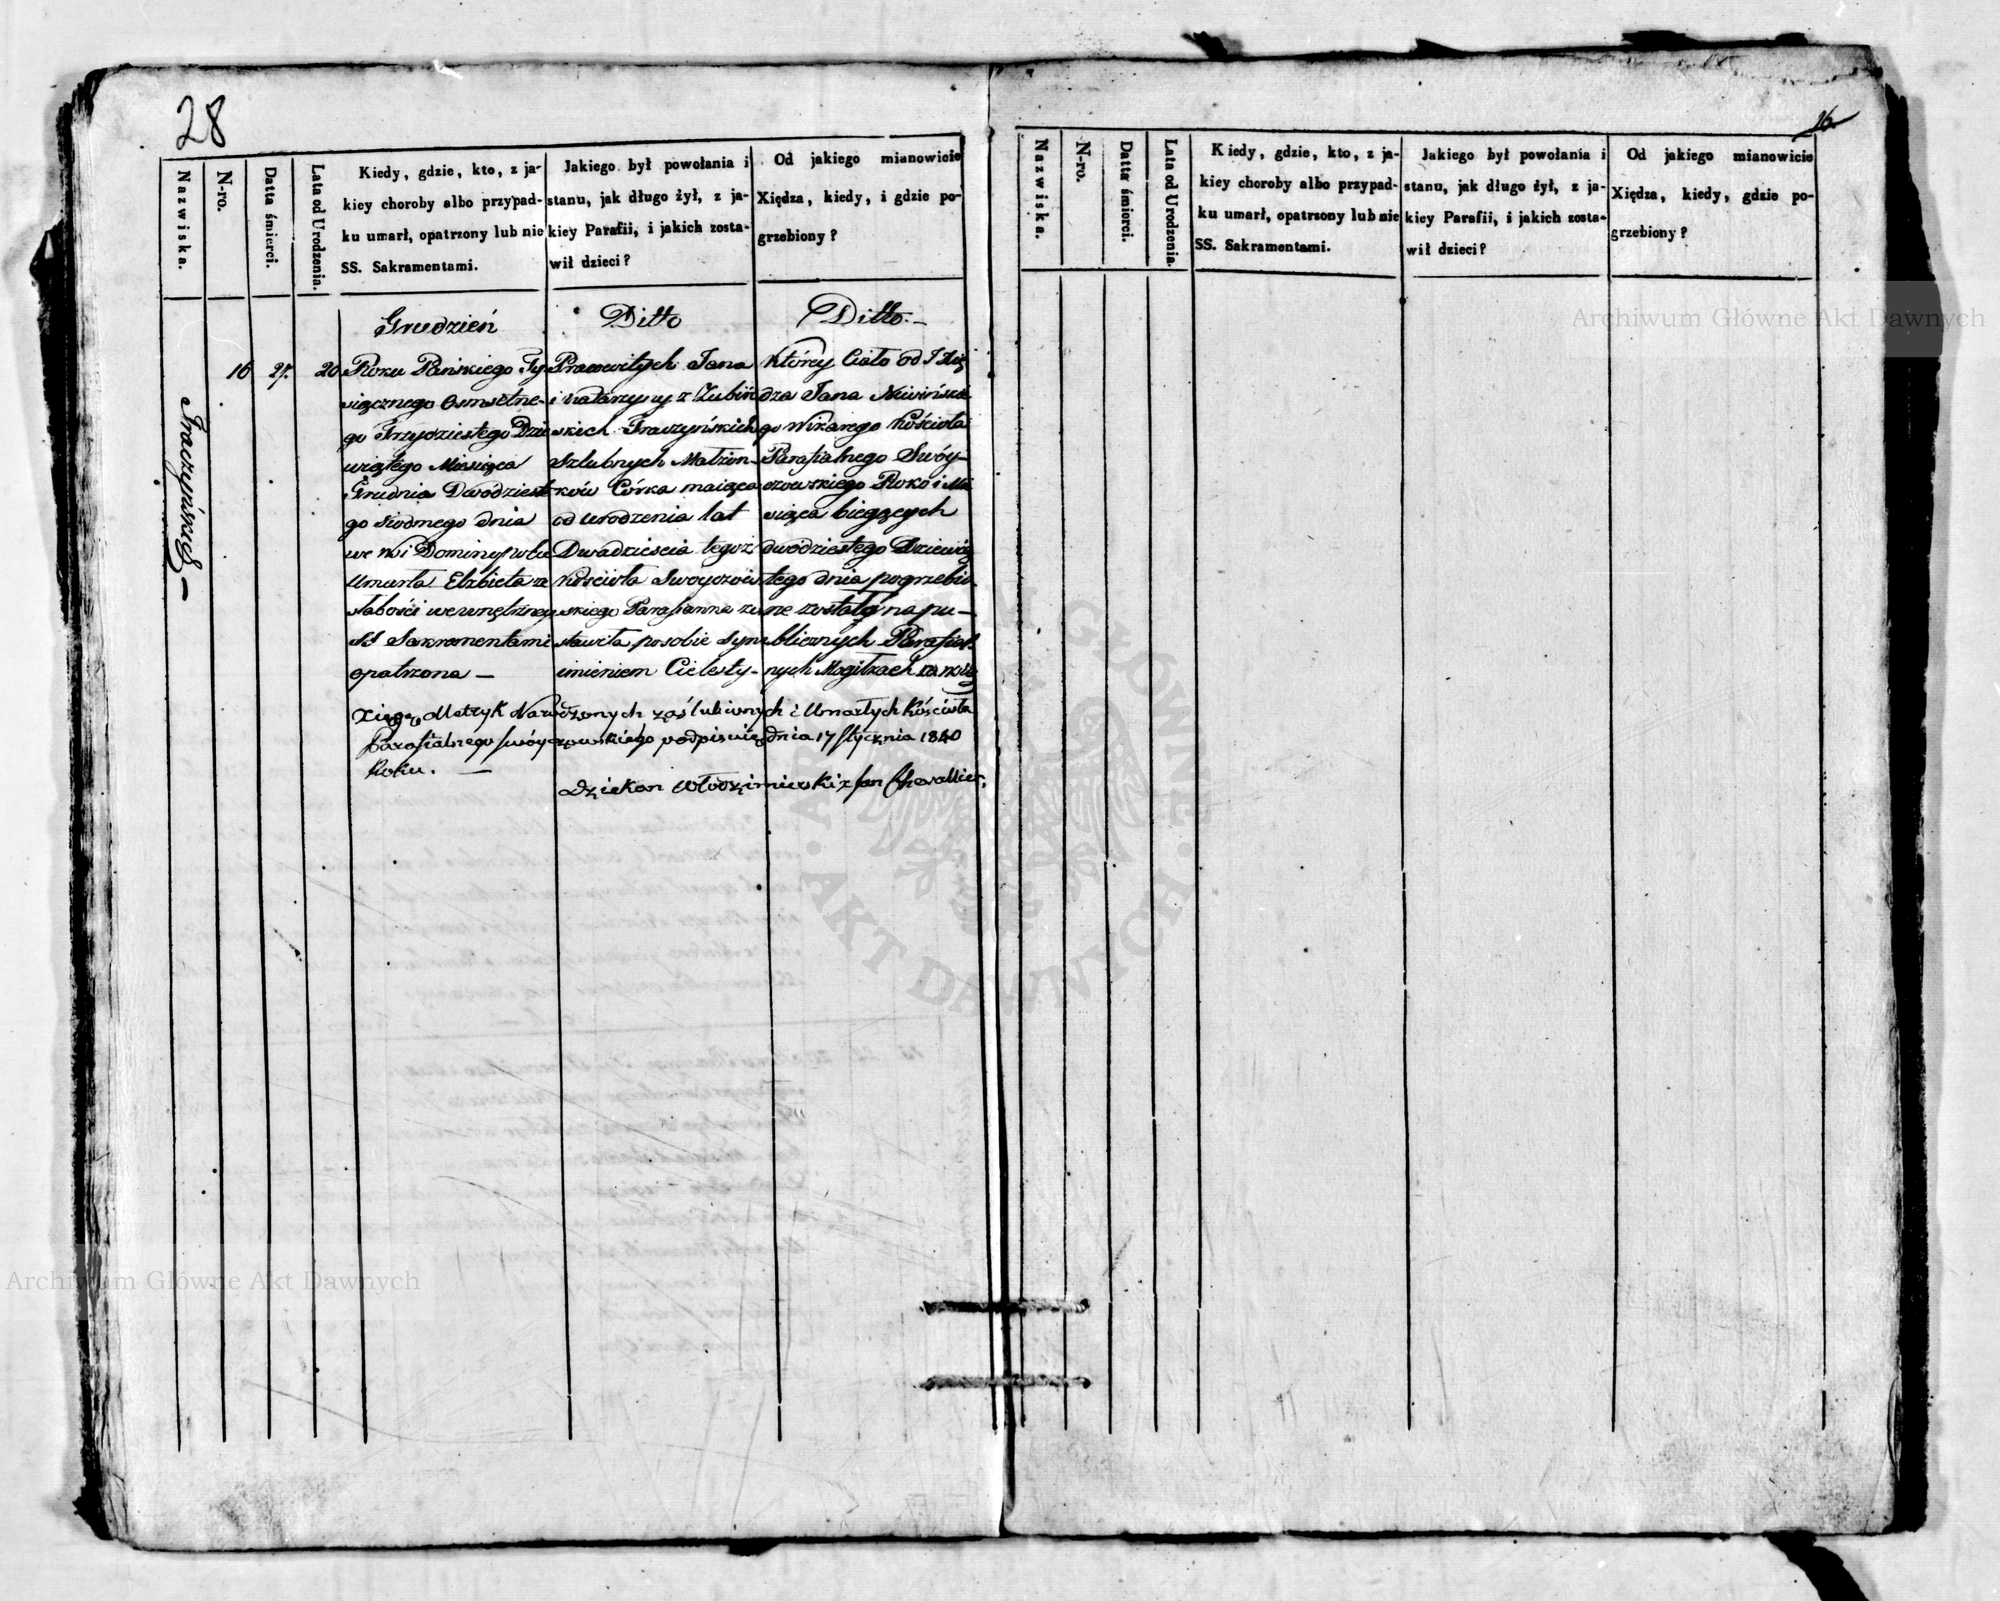 28
16.
Nazwiska.
N-ro.
Datta śmierci.
Lata od Urodzenia.
Kiedy, gdzie, kto, z ja-
kiey choroby albo przypad-
ku umarł, opatrzony lub nie
SS. Sakramentami.
Jakiego był powołania i
stanu, jak długo żył, z ja-
kiey Parafii, i jakich zosta-
wił dzieci?
Od jakiego mianowicie
Xiędza, kiedy, i gdzie po-
grzebiony?
Grudzień
16 27. 20
Roku Pańskiego Ty
siącznego Osmsetne-
go Trzydziestego Dzie
wiątego Miesiąca
Grudnia Dwódziest
go siodmego dnia
we wsi Dominopolu
Umarła Elzbieta ze
słabości wewnętrzney
SS Sakramentami
opatrzona —
Ditto
Pracowitych Jana
i Katarzyny z Lubiń
skich Traczyńskich
Szlubnych Małżon-
ków Córka maiąca
od urodzenia lat
Dwadziescia tegoż
Kościoła Swoyczow
skiego Parafianna zo
stawiła po sobie syna
imieniem Celesty-
Ditto.—
którey Ciało od J Xię
dza Jana
go Wikarego Kościoła
Parafialnego Swóy-
czowskiego Roko i Mie
siąca bieżących
dwódziestego Dziewią
tego dnia pogrzebio
ne zostało na pu—
blicznych Parafial
nych Mogiłkach
Xięgę Metryk Narodzonych zaślubionych i Umarłych Kościoła
Parafialnego Swóyczowskiego podpisuię dnia 17 Stycznia 1840
Roku. —
Dziekan Włodzimierski X Jan Chevallier.
Nazwiska.
N-ro.
Datta śmierci.
Lata od Urodzenia.
Kiedy, gdzie, kto, z ja-
kiey choroby albo przypad-
ku umarł, opatrzony lub nie
SS. Sakramentami.
Jakiego był powołania i
stanu, jak długo żył, z ja-
kiey Parafii, i jakich zosta-
wił dzieci?
Od jakiego mianowicie
Xiędza, kiedy, gdzie po-
grzebiony?
Archiwum Główne Akt Dawnych
Archiwum Główne Akt Dawnych